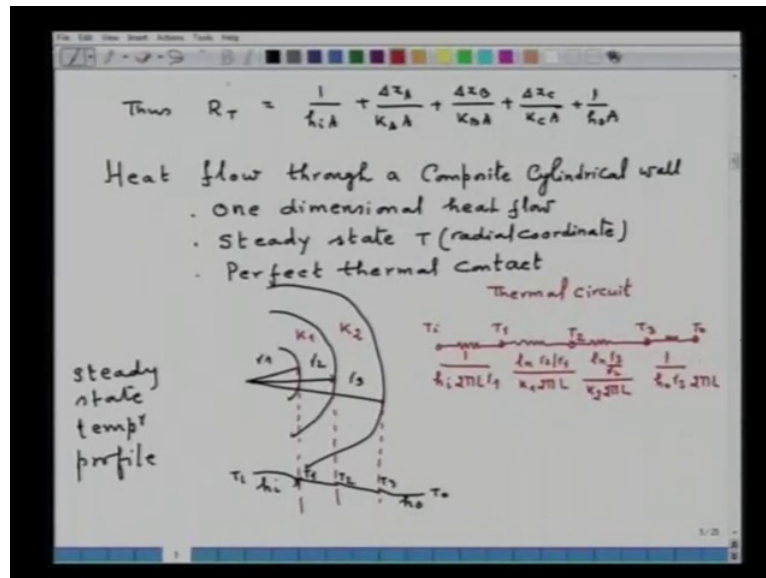 File Edit View Insert Actions Tools Help
Thus R_T = 1/(h_i A) + Δx_A/(K_A A) + Δx_B/(K_B A) + Δx_C/(K_C A) + 1/(h_o A)
Heat flow through a Composite Cylindrical wall
. one dimensional heat flow
. Steady state T (radial coordinate)
. Perfect thermal contact
Thermal circuit
K_1 K_2
r_1 r_2 r_3
T_i T_1 T_2 T_3 T_o
1/(h_i 2πL r_1) ln r_2/r_1/(K_1 2πL) ln r_3/r_2/(K_2 2πL) 1/(h_o r_3 2πL)
steady
state
temp^r
profile
T_i h_i T_1 T_2 T_3 h_o T_o
5/25
5